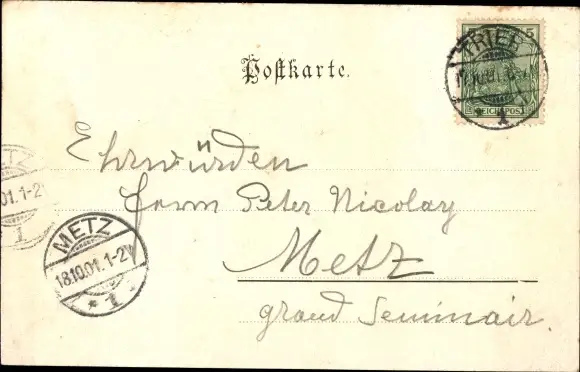 5
REICHSPOST
TRIER
1
Postkarte.
Ehrwürden
Herrn Peter Nicolay
Metz
grand Seminair.
METZ
18.10.01.1-2
1
METZ
.01.1-2
1